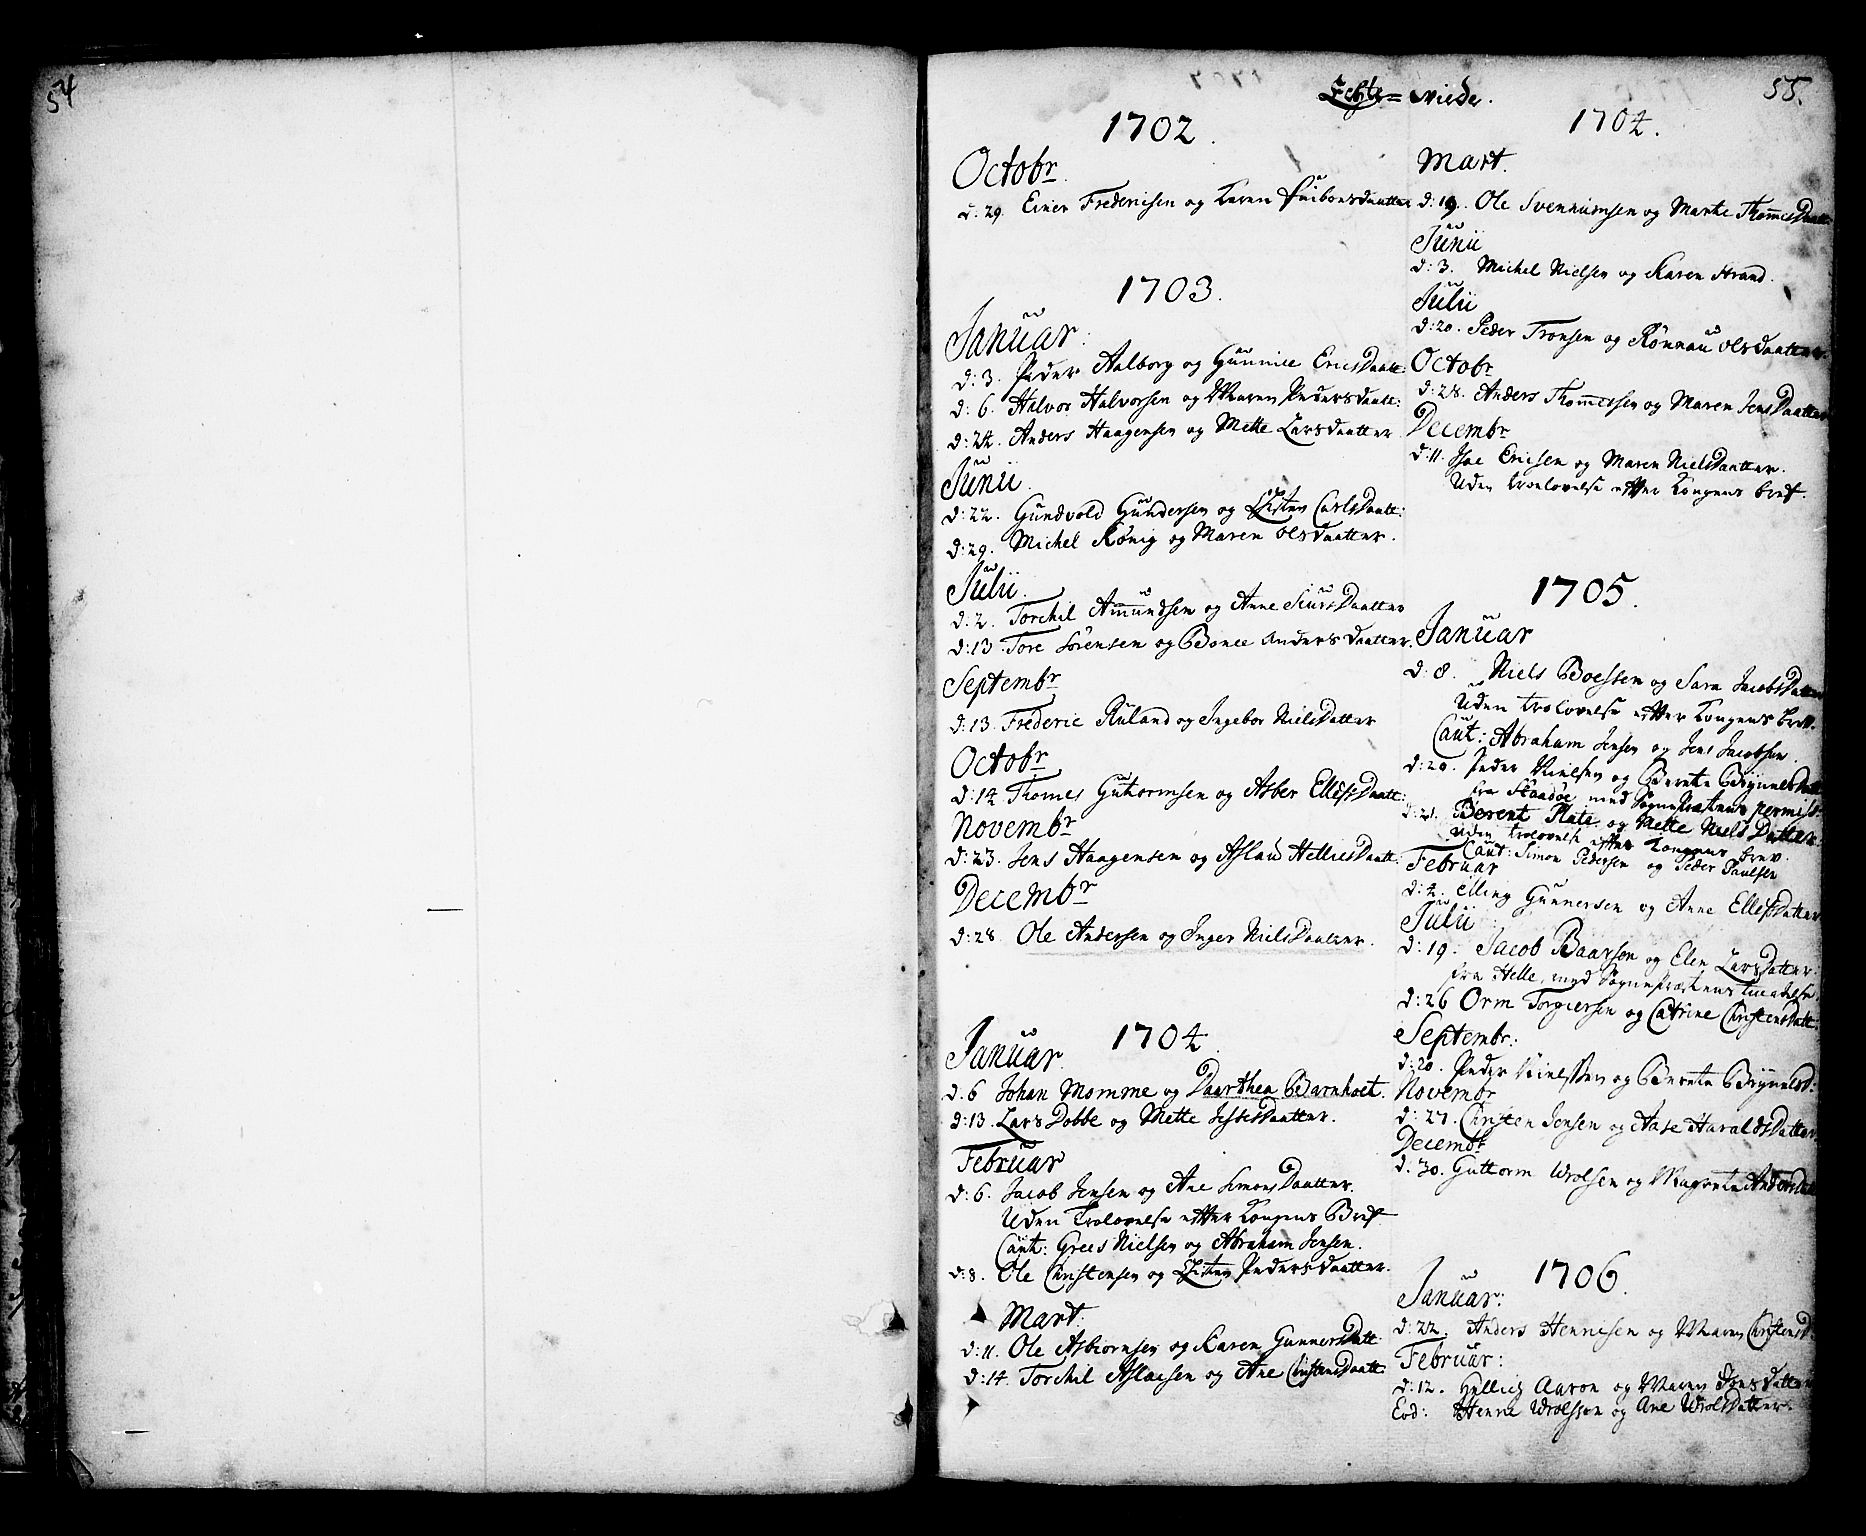 54
55.
Echte=viede.
1702.
Octobr
d. 29. Einer Frederiksen og Karen
1703.
Januar:
d: 3. Peder Aalborg og Gunnile EricsDaatt:
d: 6. Halvor Halvorsen og Maren Pedersdaatt:
d: 24. Anders Haagensen og Mette Larsdaatter
Junii.
d: 22. Gundvold Gundersen og Kisten CarlsDaatt:
d: 29. Michel König og Maren Olsdaatter.
Julii.
d: 2. Torchil Amundsen og Anne SiursDaatter
d: 13. Tore Sörensen og Bonee Andersdaatter.
Septembr
d: 13. Frederic Ruland og Ingebor NielsDatter
Octobr
d: 14. Thomes Gutormsen og Asber EllefsDaatt:
Novembr
d: 23. Jens Haagensen og Aslau HelliesDaatt:
Decembr
d: 28. Ole Andersen og Inger NielsDaatter.
1704.
Januar.
d. 6 Johan Momme og Daarthea Barnhoet.
d: 13. Lars Dobbe og Mette JessesDaatter.
Februar
d: 6. Jacob Jensen og Ane SimonsDaatter.
Uden Trolovelse efter Kongens Bref.
Caut: Grees Nielsen og Abraham Jensen.
d: 8. Ole Christensen og Kisten Pedersdaatter.
Mart:
d: 11. Ole Asbiornsen og Karen GunnersDatt:
d: 14. Torchil Aslacsen og Ane ChristensDaatt:
1704.
Mart.
d: 19. Ole Svennumsen og Marte ThomesDaatt:
Junii
d: 3. Michel Nielsen og Karen Strand.
Julii
d: 20. Peder Tronsen og Rönnau Olsdaatter.
Octobr
d: 28. Anders Thommesen og Maren JensDaatter
Decembr
d: 11. Isac Ericsen og Maren NielsDaatter.
Uden troelovelse efter Kongens bref.
1705.
Januar
d: 8. Niels Boessen og Sara JacobsDatter
Uden trolovelse efter Kongens brev.
Caut: Abraham Jensen og Jens Jacobsen.
d: 20. Peder Nielsen og Berete BrynnelsDatt
fra Skaadöe med Sognepræstens permiss:
d: 21. Berent Plate og Mette NielsDatter.
Uden trolovelse efter Kongens brev.
Caut: Simon Pedersen og Peder Paulsen
Februar
d: 4. Elling Gunnersen og Anne EllefsDatter
Julii
d: 19. Jacob Baarsen og Elen LarsDatter:
fra Helle, med Sognepræstens
d: 26 Orm Torgiersen og Catrine ChristensDatt:
Septembr:
d: 20. Peder Nielssen og Berete Brynnelsd:
Novembr
d: 27. Christen Jensen og Aase HaraldsDatter
Decembr
d: 30. Guttorm Wrolsen og Magrete AndersDatt
1706.
Januar:
d: 22. Anders Hennisen og Maren ChristensD:
Februar:
d: 12. Hellich Aaron og Maren Jonsdatter
Eod: Henne Wrolsson og Ane WrolsDatter.